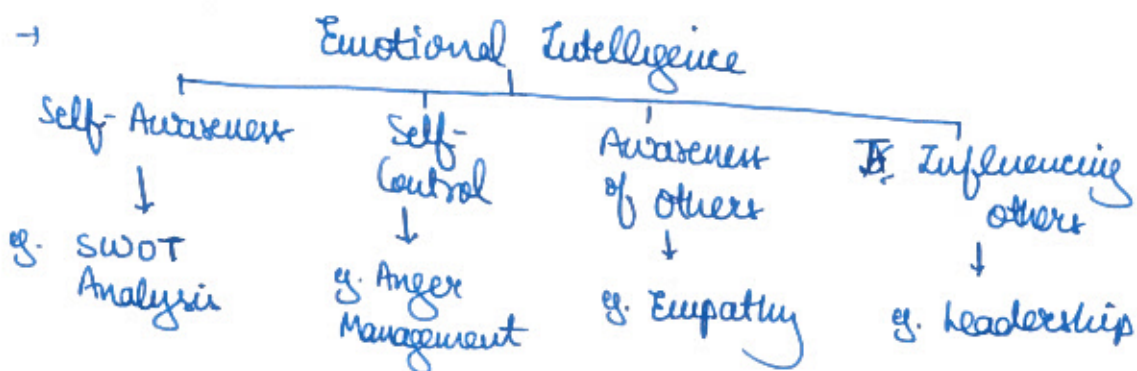 → Emotional Intelligence
Self-Awareness
↓
eg. SWOT
Analysis
Self-
Control
↓
eg. Anger
Management
Awareness
of others
↓
eg. Empathy
Influencing
others
↓
eg. Leadership